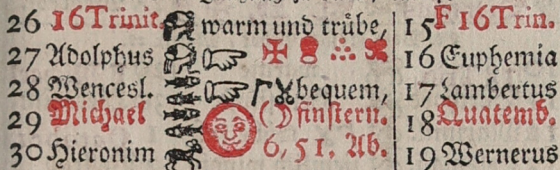 26 16 Trinit. warm und trůbe, 15 F 16 Trin.
27 Adolphus 16 Euphemia
28 Wencesl. bequem, 17 Lambertus
29 Michael finstern. 18 Quatemb.
30 Hieronim 6, 51. Ab. 19 Wernerus